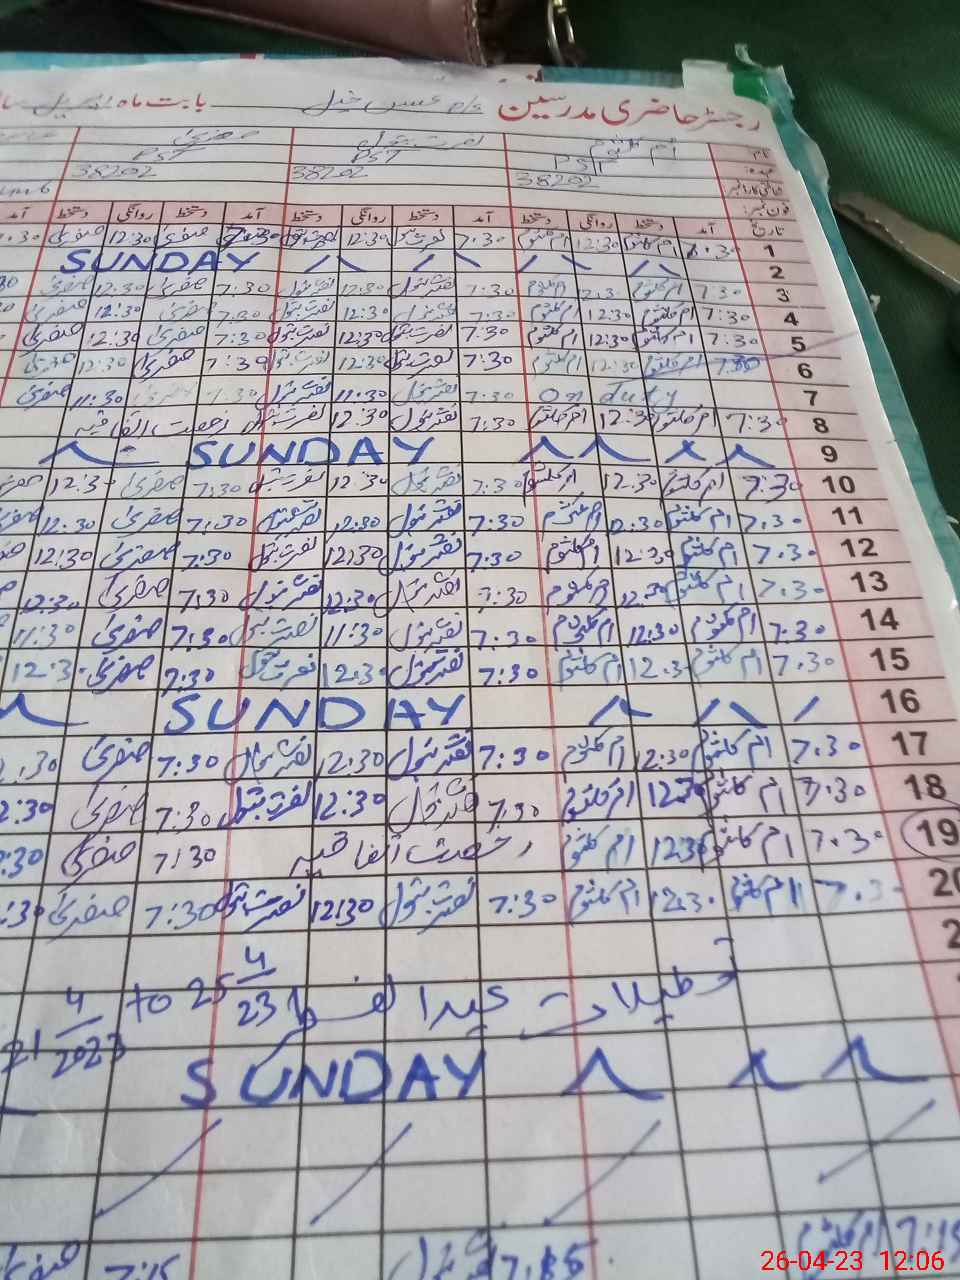 رجسٹر حاضری مدرسین بابت ماہ اپریل
نام ام کلثوم نصرت بتول صغریٰ
عہدہ PST PST PST
38202 38202 38202
فون نمبر
تاریخ آمد دستخط روانگی دستخط آمد دستخط روانگی دستخط آمد دستخط روانگی دستخط آمد
1 7.30 ام کلثوم 12:30 ام کلثوم 7.30 نصرت بتول 12:30 نصرت بتول 7:30 صغریٰ 12:30 صغریٰ
2 SUNDAY
3 7:30 ام کلثوم 12.30 ام کلثوم 7:30 نصرت بتول 12:30 نصرت بتول 7:30 صغریٰ 12:30 صغریٰ
4 7:30 ام کلثوم 12:30 ام کلثوم 7:30 نصرت بتول 12:30 نصرت بتول 7:30 صغریٰ 12:30 صغریٰ
5 7:30 ام کلثوم 12:30 ام کلثوم 7:30 نصرت بتول 12:30 نصرت بتول 7:30 صغریٰ 12:30 صغریٰ
6 7:30 ام کلثوم 12:30 ام کلثوم 7:30 نصرت بتول 12:30 نصرت بتول 7:30 صغریٰ 12:30 صغریٰ
7 On duty 7:30 نصرت بتول 11:30 نصرت بتول 7:30 صغریٰ 11:30 صغریٰ
8 7:30 ام کلثوم 12:30 ام کلثوم 7:30 نصرت بتول 12:30 نصرت بتول رخصت اتفاقیہ
9 SUNDAY
10 7:30 ام کلثوم 12.30 ام کلثوم 7:30 نصرت بتول 12:30 نصرت بتول 7:30 صغریٰ 12:30 صغریٰ
11 7.30 ام کلثوم 12:30 ام کلثوم 7:30 نصرت بتول 12:30 نصرت بتول 7:30 صغریٰ 12:30
12 7.30 ام کلثوم 12:30 ام کلثوم 7:30 نصرت بتول 12:30 نصرت بتول 7:30 صغریٰ 12:30
13 7.30 ام کلثوم 12:30 ام کلثوم 7:30 نصرت بتول 12:30 نصرت بتول 7:30 صغریٰ 12:30
14 7:30 ام کلثوم 12:30 ام کلثوم 7:30 نصرت بتول 11:30 نصرت بتول 7:30 صغریٰ 11:30
15 7.30 ام کلثوم 12.30 ام کلثوم 7:30 نصرت بتول 12:30 نصرت بتول 7:30 صغریٰ 12:30
16 SUNDAY
17 7.30 ام کلثوم 12:30 ام کلثوم 7:30 نصرت بتول 12:30 نصرت بتول 7:30 صغریٰ
18 7:30 ام کلثوم 12:30 ام کلثوم 7:30 نصرت بتول 12:30 نصرت بتول 7:30 صغریٰ
19 7.30 ام کلثوم 12:30 ام کلثوم رخصت اتفاقیہ 7:30 صغریٰ
20 7.30 ام کلثوم 12.30 ام کلثوم 7:30 نصرت بتول 12:30 نصرت بتول 7:30 صغریٰ
تعطیلات عیدالفطر 21 4/2023 to 25 4/23
SUNDAY
7:15 ام کلثوم 7:15 بتول 7:15 صغریٰ
26-04-23 12:06